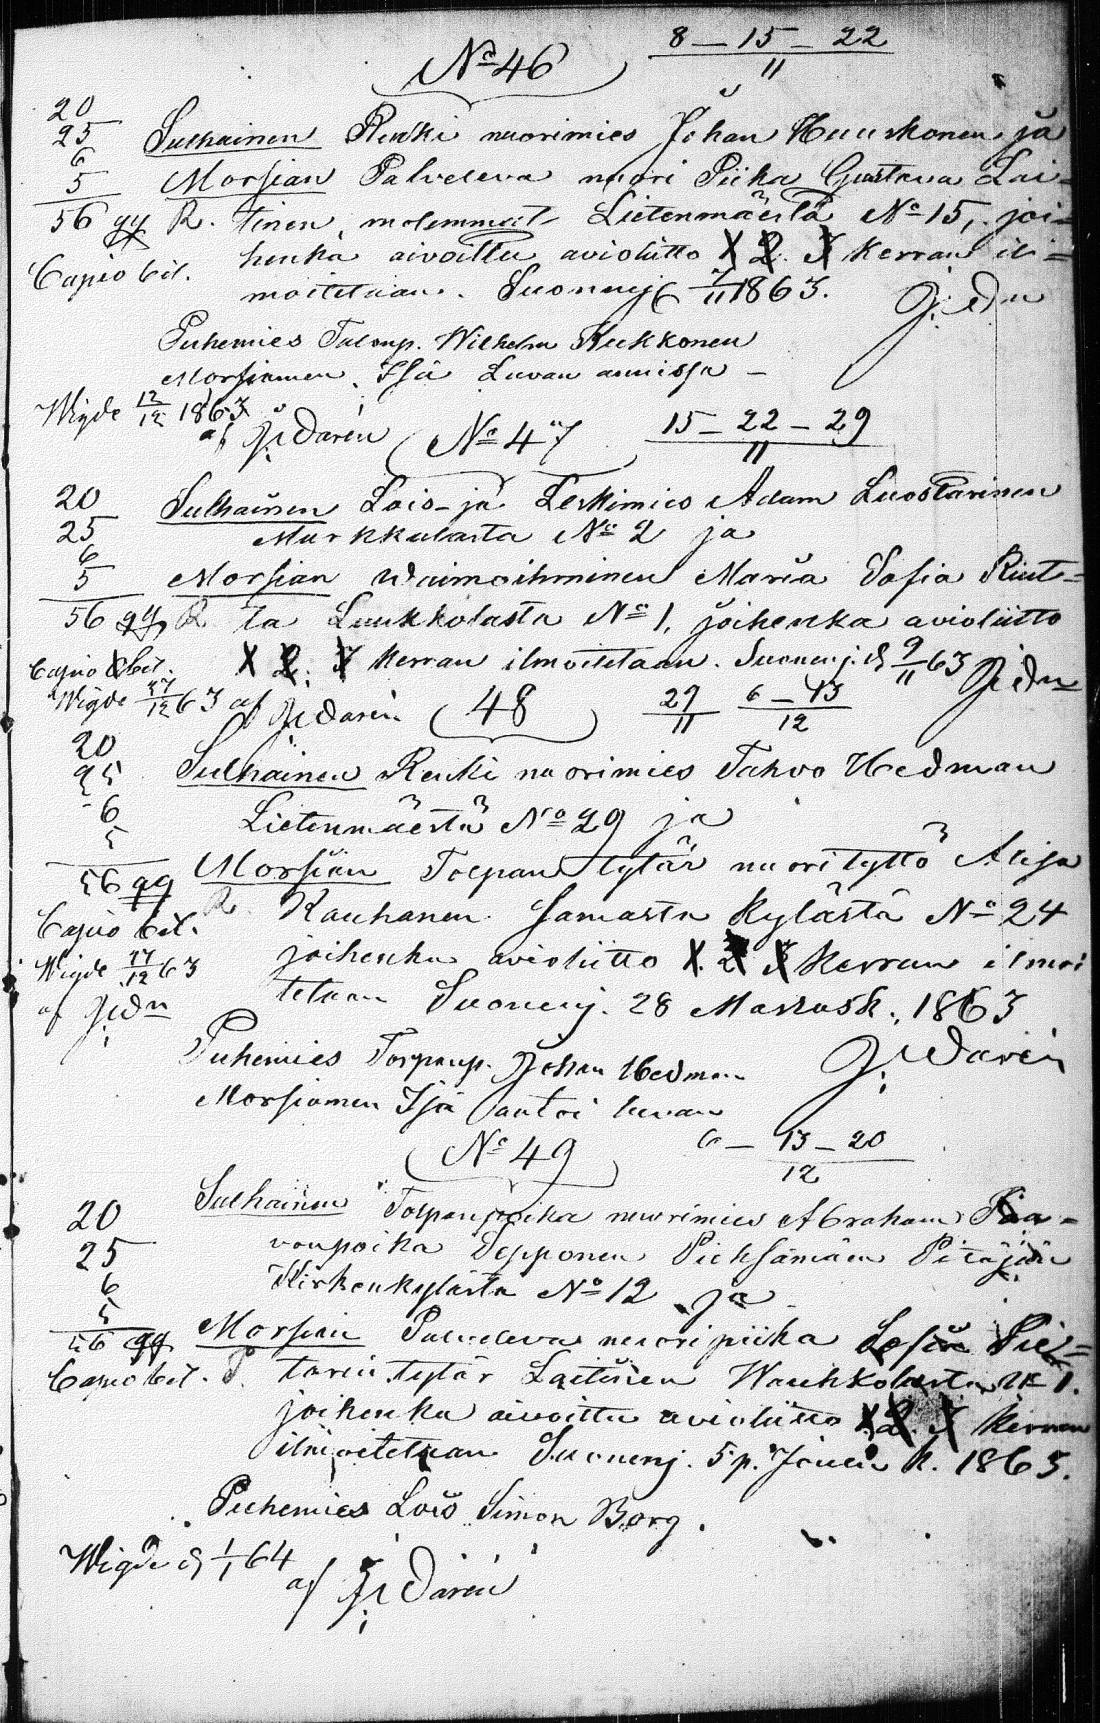 No 46 8 – 15 – 22
11
20
25 Sulhainen Renki nuorimies Johan Huuskonen ja
6
5 Morsian Palveleva nuori Piika Gustava Lai=
56 R. tinen, molemmat Lietenmäestä No 15, joi=
henka aivottu avioliitto 1 2. 3 kerran il=
Capio bet.
moitetaan. Suonenj. 7/11 1863.
Puhemies Talonp. Wilhelm Kukkonen
Morsiamen Isä Luvan annissa –
Wigde 12/12 1863
af
No 47 15 – 22 – 29
11
20 Sulhainen Lois- ja Leskimies Adam Luostarinen
25 Markkulasta No 2 ja
6
5 Morsian Waimoihminen Maria Sofia Riut=
56 R ta Luukkolasta No 1, joihenka avioliitto
Capio bet. 1 2. 3 kerran ilmoitetaan. Suonenj. d 9/11 63
Wigde 27/12 63 af
48 29/11 6 – 13/12
20
25 Sulhainen Renki nuorimies Tahvo Hedman
6 Lietenmäestä No 29 ja
5
56 Morsian Torpan tytär nuori tyttö
R. Kauhanen samasta kylästä No 24
Capio bet.
joihenka avioliitto 1. 2 3 kerran ilmoi
Wigde 27/12 63
af
tetaan Suonenj. 28 Marrask. 1863
Puhemies Torpanp. Johan Hedman
Morsiamen Isä antoi luvan
No 49 6 – 13 – 20
12
20 Sulhainen Torpanpoika nuorimies Abraham Paa=
25 vonpoika Sepponen Pieksämäen Pitäjän
6 Kirkonkylästä No 12 ja
5
56 Morsian Palveleva nuori piika Pie=
Capio bet. tarin tytär Laitinen Wauhkolasta No 1.
joihenka aivottu avioliitto 1. 2. 3 kerran
ilmoitetaan Suonenj. 5 p. Joulu k. 1863.
Puhemies Lois Simon Borg.
Wigde d 1/1 64
af